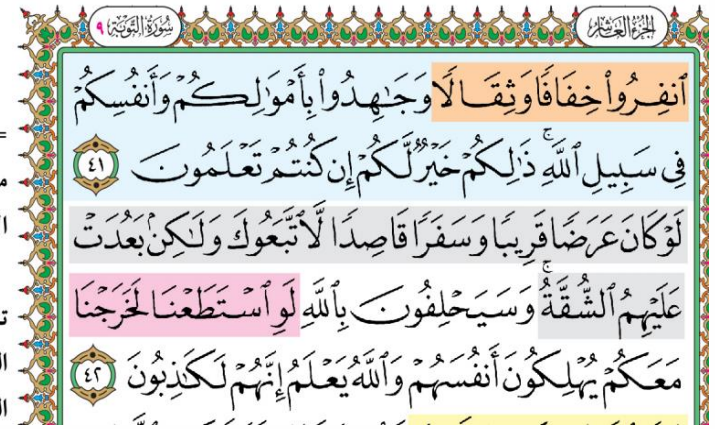 الجزء العاشر سورة التوبة ٩
ٱنفِرُوا۟ خِفَافًا وَثِقَالًا وَجَـٰهِدُوا۟ بِأَمْوَٰلِكُمْ وَأَنفُسِكُمْ
فِى سَبِيلِ ٱللَّهِ ۚ ذَٰلِكُمْ خَيْرٌ لَّكُمْ إِن كُنتُمْ تَعْلَمُونَ ٤١
لَوْ كَانَ عَرَضًا قَرِيبًا وَسَفَرًا قَاصِدًا لَّٱتَّبَعُوكَ وَلَـٰكِنۢ بَعُدَتْ
عَلَيْهِمُ ٱلشُّقَّةُ ۚ وَسَيَحْلِفُونَ بِٱللَّهِ لَوِ ٱسْتَطَعْنَا لَخَرَجْنَا
مَعَكُمْ يُهْلِكُونَ أَنفُسَهُمْ وَٱللَّهُ يَعْلَمُ إِنَّهُمْ لَكَـٰذِبُونَ ٤٢